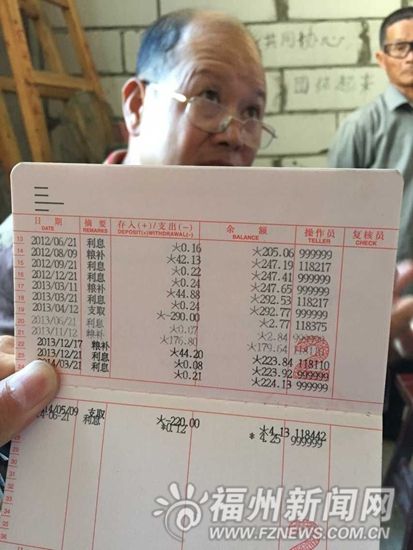 共同协心
团结起来
日期 摘要 存入(+)/支出(-) 余额 操作员 复核员
DATE REMARKS DEPOSIT(+)WITHDRAWAL(-) BALANCE TELLER CHECK
13 2012/06/21 利息 *0.16 *205.06 999999
14 2012/08/09 粮补 *42.13 *247.19 118217
15 2012/09/21 利息 *0.22 *247.41 999999
16 2012/12/21 利息 *0.24 *247.65 999999
17 2013/03/11 粮补 *44.88 *292.53 118217
18 2013/03/21 利息 *0.24 *292.77 999999
19 2013/04/12 支取 *-290.00 *2.77 118375
20 2013/06/21 利息 *0.07 *2.84 999999
21 2013/11/12 粮补 *176.80 *179.64
22 2013/12/17 粮补 *44.20 *223.84 118110
2013/12/21 利息 *0.08 *223.92 999999
14/03/21 利息 *0.21 *224.13 999999
14/05/09 支取 *-220.00 *4.13 118442
14-06-21 利息 *0.12 *4.25 999999
福州新闻网
WWW.FZNEWS.COM.CN